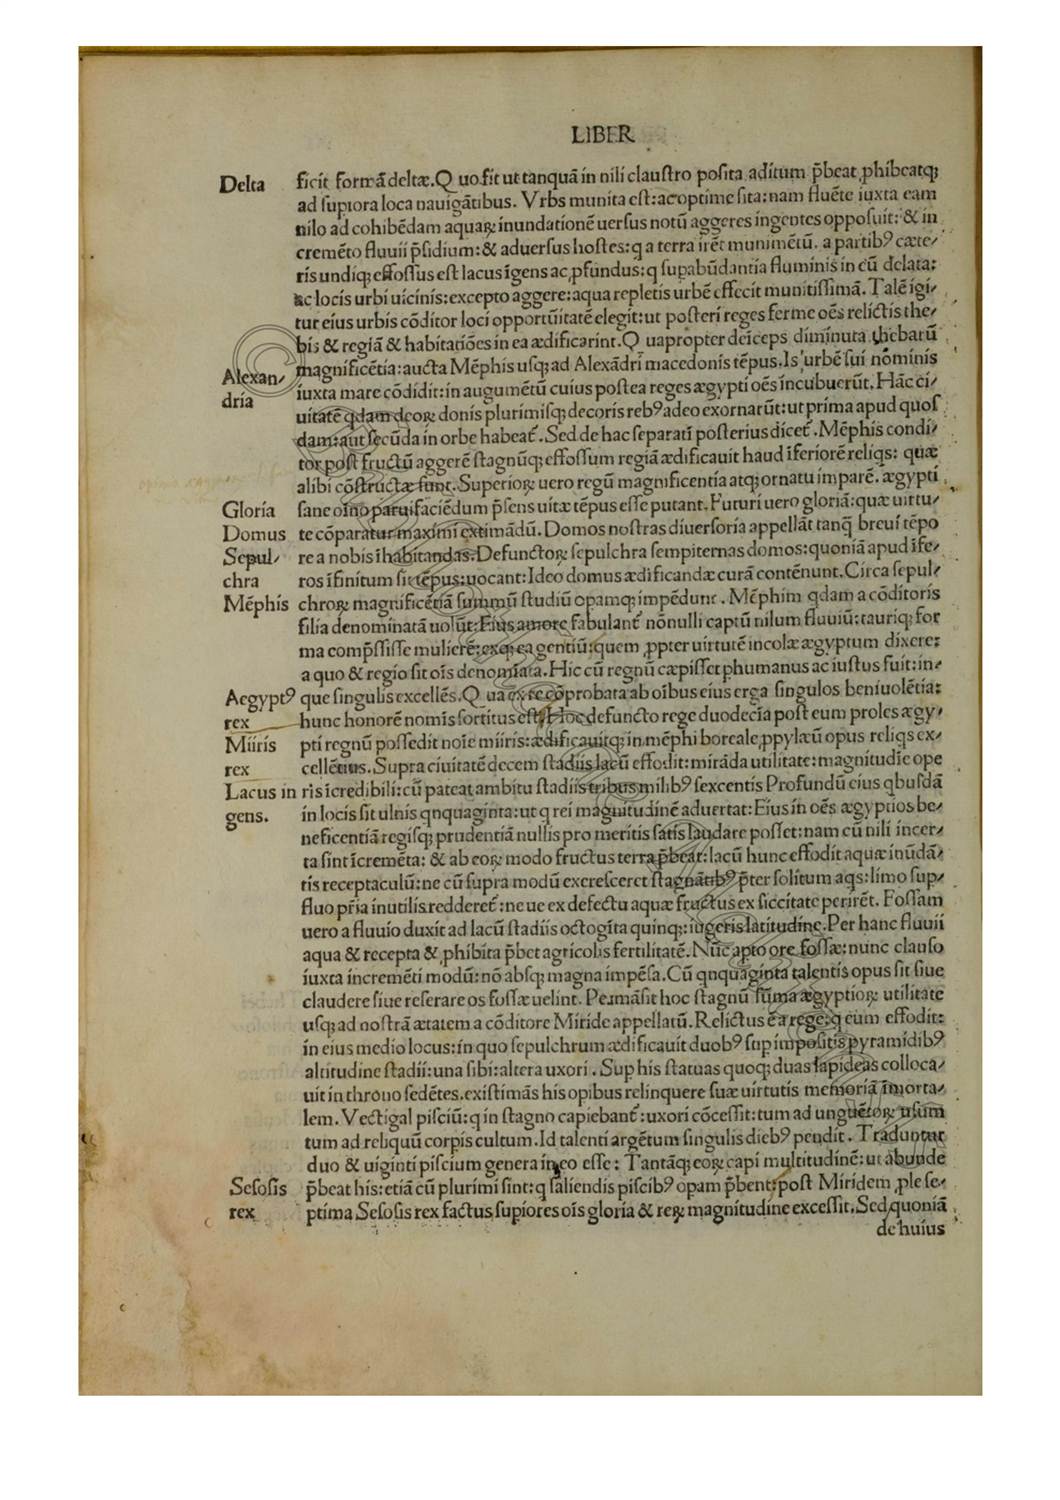 LIBER
Delta ficit formã deltæ. Quo fit ut tanquã in nili claustro posita aditum p̃beat ꝓhibeatq;
ad supiora loca nauigãtibus. Vrbs munita est: ac optime sita: nam fluẽte iuxta eam
nilo ad cohibẽdam aquaꝝ inundationẽ uersus notũ aggeres ingentes opposuit: & in
cremẽto fluuii p̃sidium: & aduersus hostes: q a terra irẽt munimẽtũ. a partibꝰ cæte/
ris undiq; effossus est lacus ĩgens ac ꝓfundus: q supabũdantia fluminis in eũ delata:
ac locis urbi uicinis: excepto aggere: aqua repletis urbẽ effecit munitissimã. Talẽ igi/
tur eius urbis cõditor loci opportũitatẽ elegit: ut posteri reges ferme oẽs relictis the/
bis & regiã & habitatiões in ea ædificarint. Quapropter deiceps diminuta thebarũ
magnificẽtia: aucta Mẽphis usq; ad Alexãdri macedonis tẽpus. Is urbẽ sui nominis
Alexan/ iuxta mare cõdidit: in augumẽtũ cuius postea reges ægypti oẽs incubuerũt. Hãc ci/
dria uitatẽ qdam deoꝝ donis plurimisq; decoris rebꝰ adeo exornarũt: ut prima apud quos
dam: aut secũda in orbe habeat̃. Sed de hac separati posterius dicet̃. Mẽphis condi/
tor post fructũ aggerẽ stagnũq; effossum regiã ædificauit haud ĩferiorẽ reliqs: quæ
alibi cõstructæ sunt. Superioꝝ uero regũ magnificentia atq; ornatu imparẽ. ægypti
Gloria sane oĩno parui faciẽdum p̃sens uitæ tẽpus esse putant. Futuri uero gloriã: quæ uirtu/
Domus te cõparatur maximi extimãdũ. Domos nostras diuersoria appellãt tanq̃ breui tẽpo
Sepul/ re a nobis ĩhabitandas. Defunctoꝝ sepulchra sempiternas domos: quoniã apud ĩfe/
chra ros ĩfinitum sit tẽpus: uocant: Ideo domus ædificandæ curã contẽnunt. Circa sepul/
Mẽphis chroꝝ magnificẽtiã summũ studiũ opamq; impẽdunt. Mẽphim qdam a cõditoris
filia denominatã uolũt: Eius amore fabulant̃ nõnulli captũ nilum fluuiũ: tauriq; for
ma comp̃ssisse mulierẽ: exq; ea gentiũ: quem ꝓpter uirtutẽ incolæ ægyptum dixere:
a quo & regio sit oĩs denomĩata. Hic cũ regnũ cæpisset phumanus ac iustus fuit: in/
Aegyptꝰ que singulis excellẽs. Qua ex re cõprobata ab oĩbus eius erga singulos beniuolẽtia:
rex hunc honorẽ nomĩs sortitus est. Hoc defuncto rege duodecĩa post eum proles ægy/
Miiris pti regnũ possedit noĩe miiris: ædificauitq; in mẽphi boreale ꝓpylæũ opus reliqs ex/
rex cellẽtius. Supra ciuitatẽ decem stadiis lacũ effodit: mirãda utilitate: magnitudĩe ope
Lacus in ris ĩcredibili: cũ pateat ambitu stadiis tribus milibꝰ sexcentis Profundũ eius qbusdã
gens. in locis sit ulnis qnquaginta: ut q rei magnitudinẽ aduertat: Eius in oẽs ægyptios be/
neficentiã regisq; prudentiã nullis pro meritis satis laudare posset: nam cũ nili incer/
ta sint ĩcremẽta: & ab eoꝝ modo fructus terra p̃beat: lacũ hunc effodit aquæ inũdã/
tis receptaculũ: ne cũ supra modũ excresceret stagnãtibꝰ p̃ter solitum aqs: limo sup/
fluo p̃ria inutilis redderet̃: ne ue ex defectu aquæ fructus ex siccitate perirẽt. Fossam
uero a fluuio duxit ad lacũ stadiis octogĩta quinq;: iugeris latitudine. Per hanc fluuii
aqua & recepta & ꝓhibita p̃bet agricolis fertilitatẽ. Nũc apto ore fossæ: nunc clauso
iuxta incremẽti modũ: nõ absq; magna impẽsa. Cũ qnquaginta talentis opus sit siue
claudere siue reserare os fossæ uelint. Permãsit hoc stagnũ sũma ægyptioꝝ utilitate
usq; ad nostrã ætatem a cõditore Miride appellatũ. Relictus e a rege: q eum effodit:
in eius medio locus: in quo sepulchrum ædificauit duobꝰ sup impositis pyramidibꝰ
altitudine stadii: una sibi: altera uxori. Sup his statuas quoq; duas lapideas colloca/
uit in throno sedẽtes. existimãs his opibus relinquere suæ uirtutis memoriã ĩmorta/
lem. Vectigal pisciũ: q in stagno capiebant̃: uxori cõcessit: tum ad unguẽtoꝝ usum
tum ad reliquũ corpis cultum. Id talenti argẽtum singulis diebꝰ pendit. Traduntur
duo & uiginti piscium genera in eo esse: Tantãq; eoꝝ capi multitudinẽ: ut abunde
Sesosis p̃beat his: etiã cũ plurimi sint: q saliendis piscibꝰ opam p̃bent: post Miridem ꝓle se/
rex ptima Sesosis rex factus supiores oĩs gloria & reꝝ magnitudine excessit. Sed quoniã
de huius